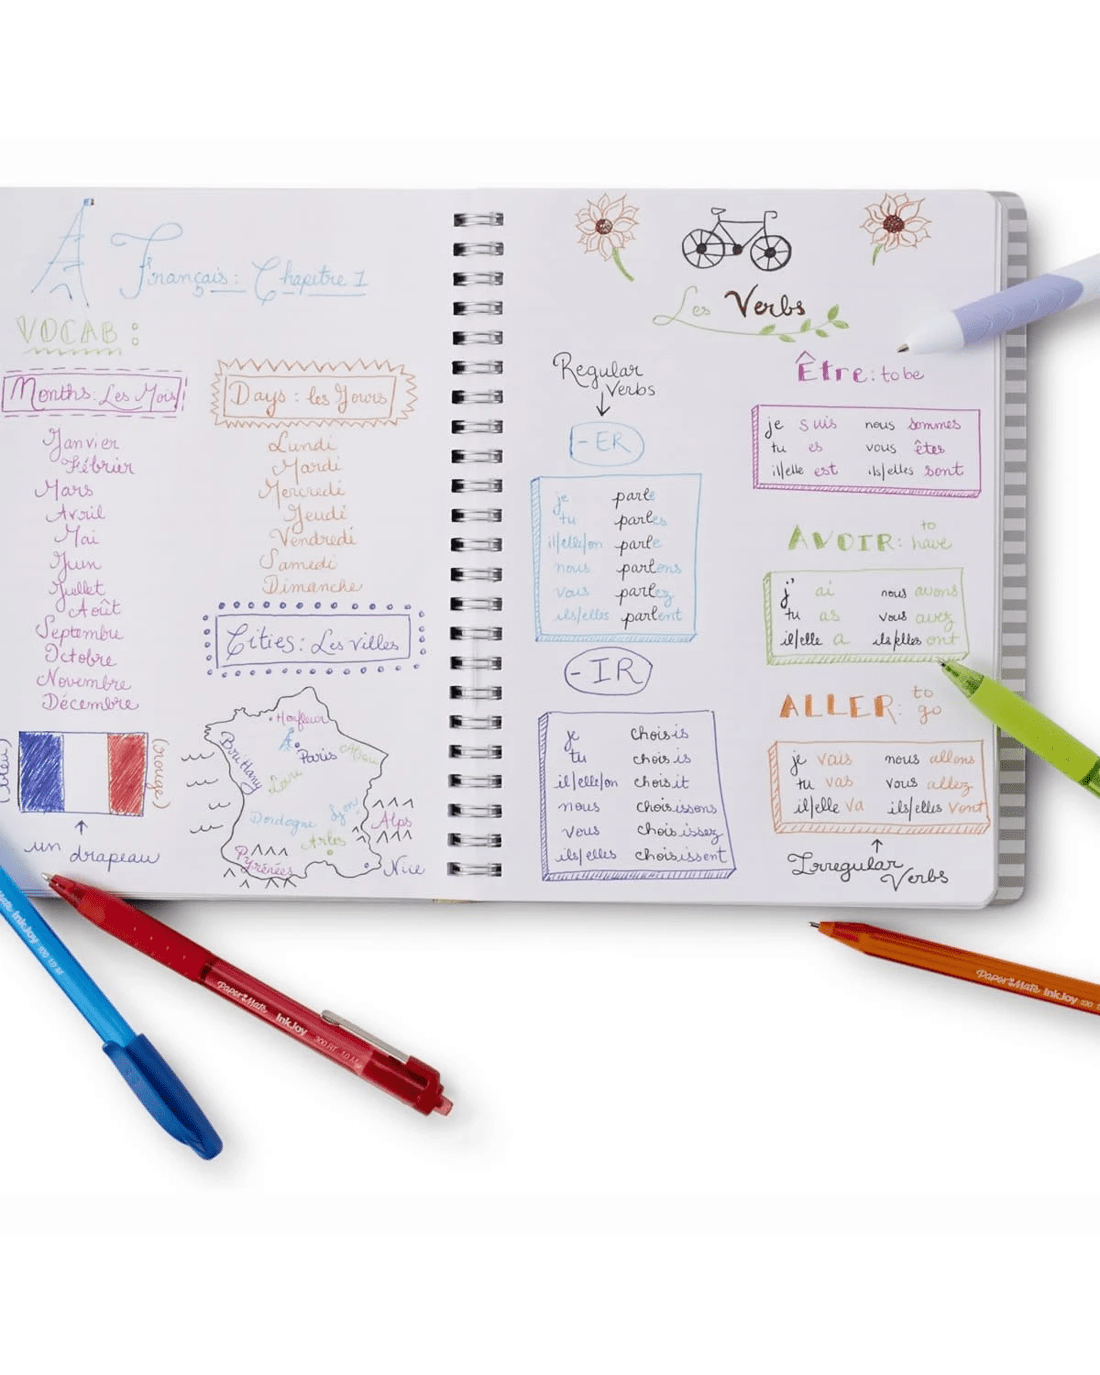 Français: Chapitre 1
VOCAB:
Months: Les Mois
Janvier
Fébrier
Mars
Avril
Mai
Juin
Juillet
Août
Septembre
Octobre
Novembre
Décembre
Days: les Jours
Lundi
Mardi
Mercredi
Jeudi
Vendredi
Samedi
Dimanche
Cities: Les villes
Honfleur
Brittany
Paris
Dordogne
Lyon
Alps
Arles
Pyrénées
Nice
(bleu)
(rouge)
un drapeau
Les Verbs
Regular
Verbs
-ER
je parle
tu parles
il/elle/on parle
nous parlons
vous parlez
ils/elles parlent
-IR
je choisis
tu choisis
il/elle/on choisit
nous choisissons
vous choisissez
ils/elles choisissent
Être: to be
je suis nous sommes
tu es vous êtes
il/elle est ils/elles sont
AVOIR: to have
j' ai nous avons
tu as vous avez
il/elle a ils/elles ont
ALLER: to go
je vais nous allons
tu vas vous allez
il/elle va ils/elles vont
Irregular
Verbs
InkJoy 100 1.0 M
PaperMate InkJoy 300 RT 1.0 M
PaperMate InkJoy